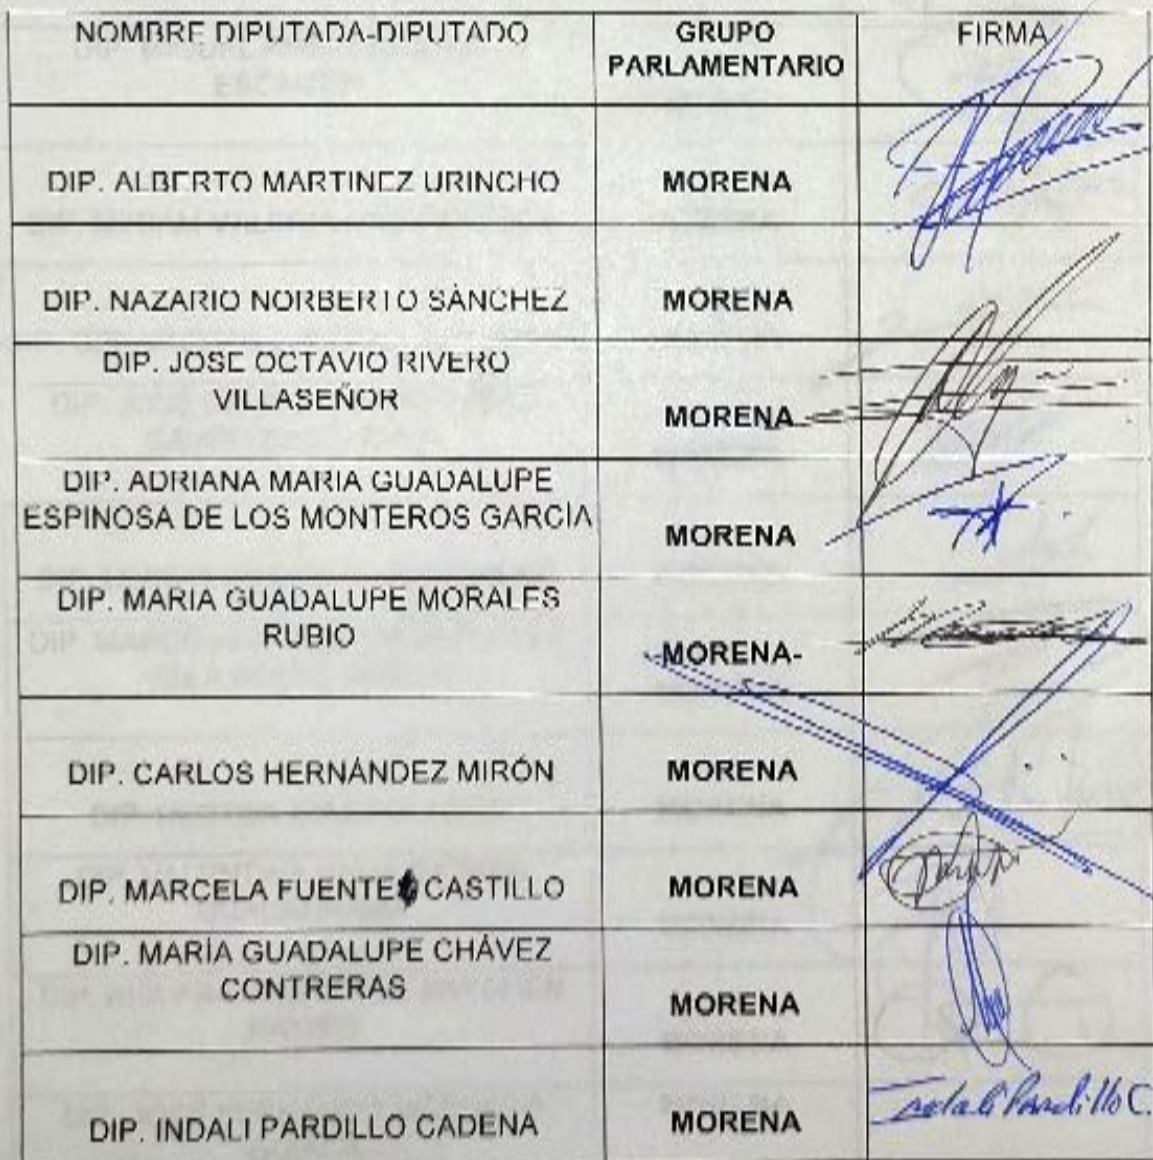 NOMBRE DIPUTADA-DIPUTADO
GRUPO
PARLAMENTARIO
FIRMA
DIP. ALBERTO MARTINEZ URINCHO
MORENA
DIP. NAZARIO NORBERTO SÁNCHEZ
MORENA
DIP. JOSE OCTAVIO RIVERO
VILLASEÑOR
MORENA
DIP. ADRIANA MARIA GUADALUPE
ESPINOSA DE LOS MONTEROS GARCÍA
MORENA
DIP. MARIA GUADALUPE MORALES
RUBIO
MORENA-
DIP. CARLOS HERNÁNDEZ MIRÓN
MORENA
DIP. MARCELA FUENTE CASTILLO
MORENA
DIP. MARÍA GUADALUPE CHÁVEZ
CONTRERAS
MORENA
DIP. INDALI PARDILLO CADENA
MORENA
Indalí Pardillo C.